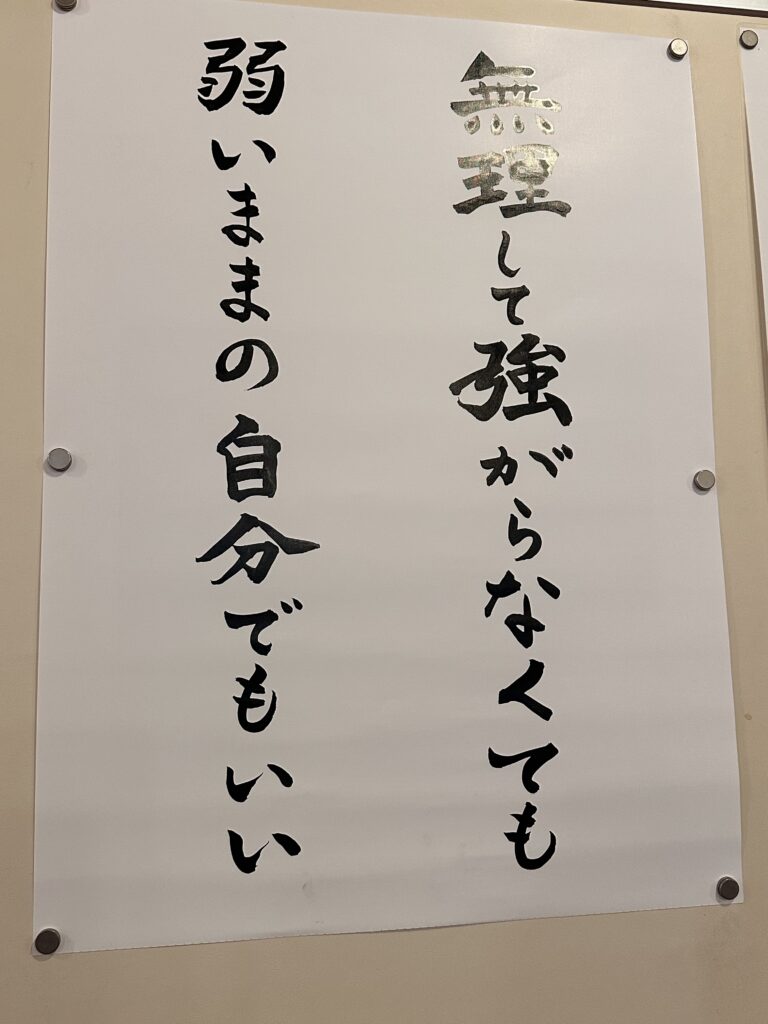 無理して強がらなくても
弱いままの自分でもいい